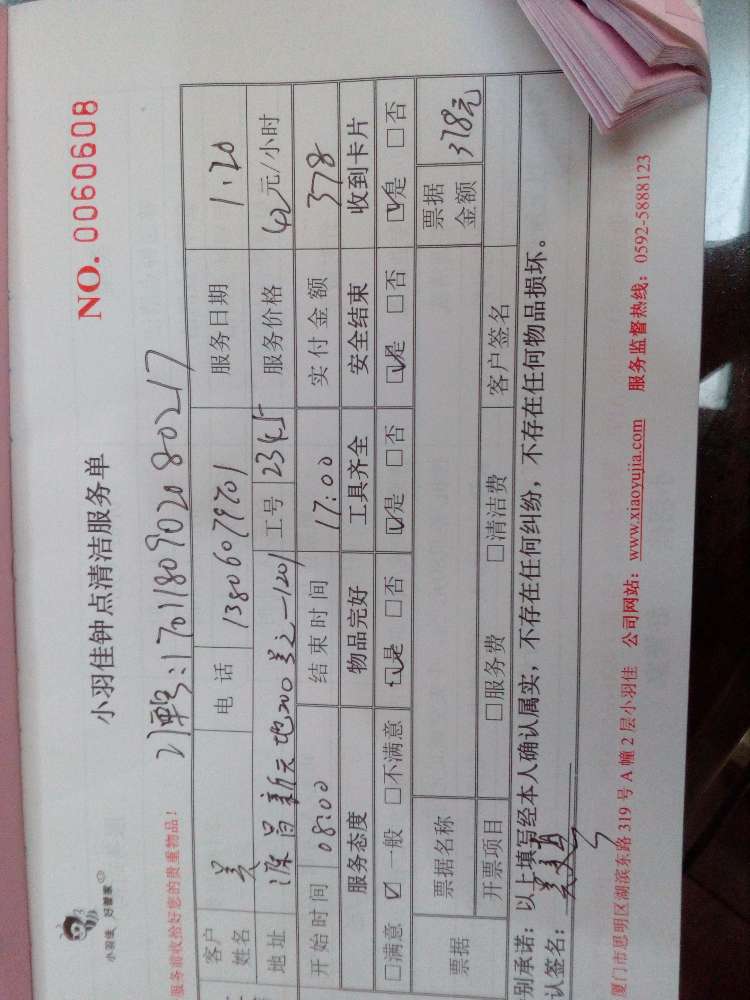 小羽佳 好管家
小羽佳钟点清洁服务单
NO. 0060608
服务前收拾好您的贵重物品！
订单号:1701180902080217
客户姓名 吴 电话 13806079701 服务日期 1.20
地址 源昌新天地200号之一1201 工号 2345 服务价格 42元/小时
开始时间 08:00 结束时间 17:00 实付金额 378
服务态度 物品完好 工具齐全 安全结束 收到卡片
□满意 ☑一般 □不满意 ☑是 □否 ☑是 □否 ☑是 □否 ☑是 □否
票据 票据名称 票据金额 378元
开票项目 □服务费 □清洁费 客户签名
别承诺：以上填写经本人确认属实，不存在任何纠纷，不存在任何物品损坏。
认签名：
厦门市思明区湖滨东路 319 号 A 幢 2 层小羽佳 公司网站：www.xiaoyujia.com 服务监督热线：0592-5888123